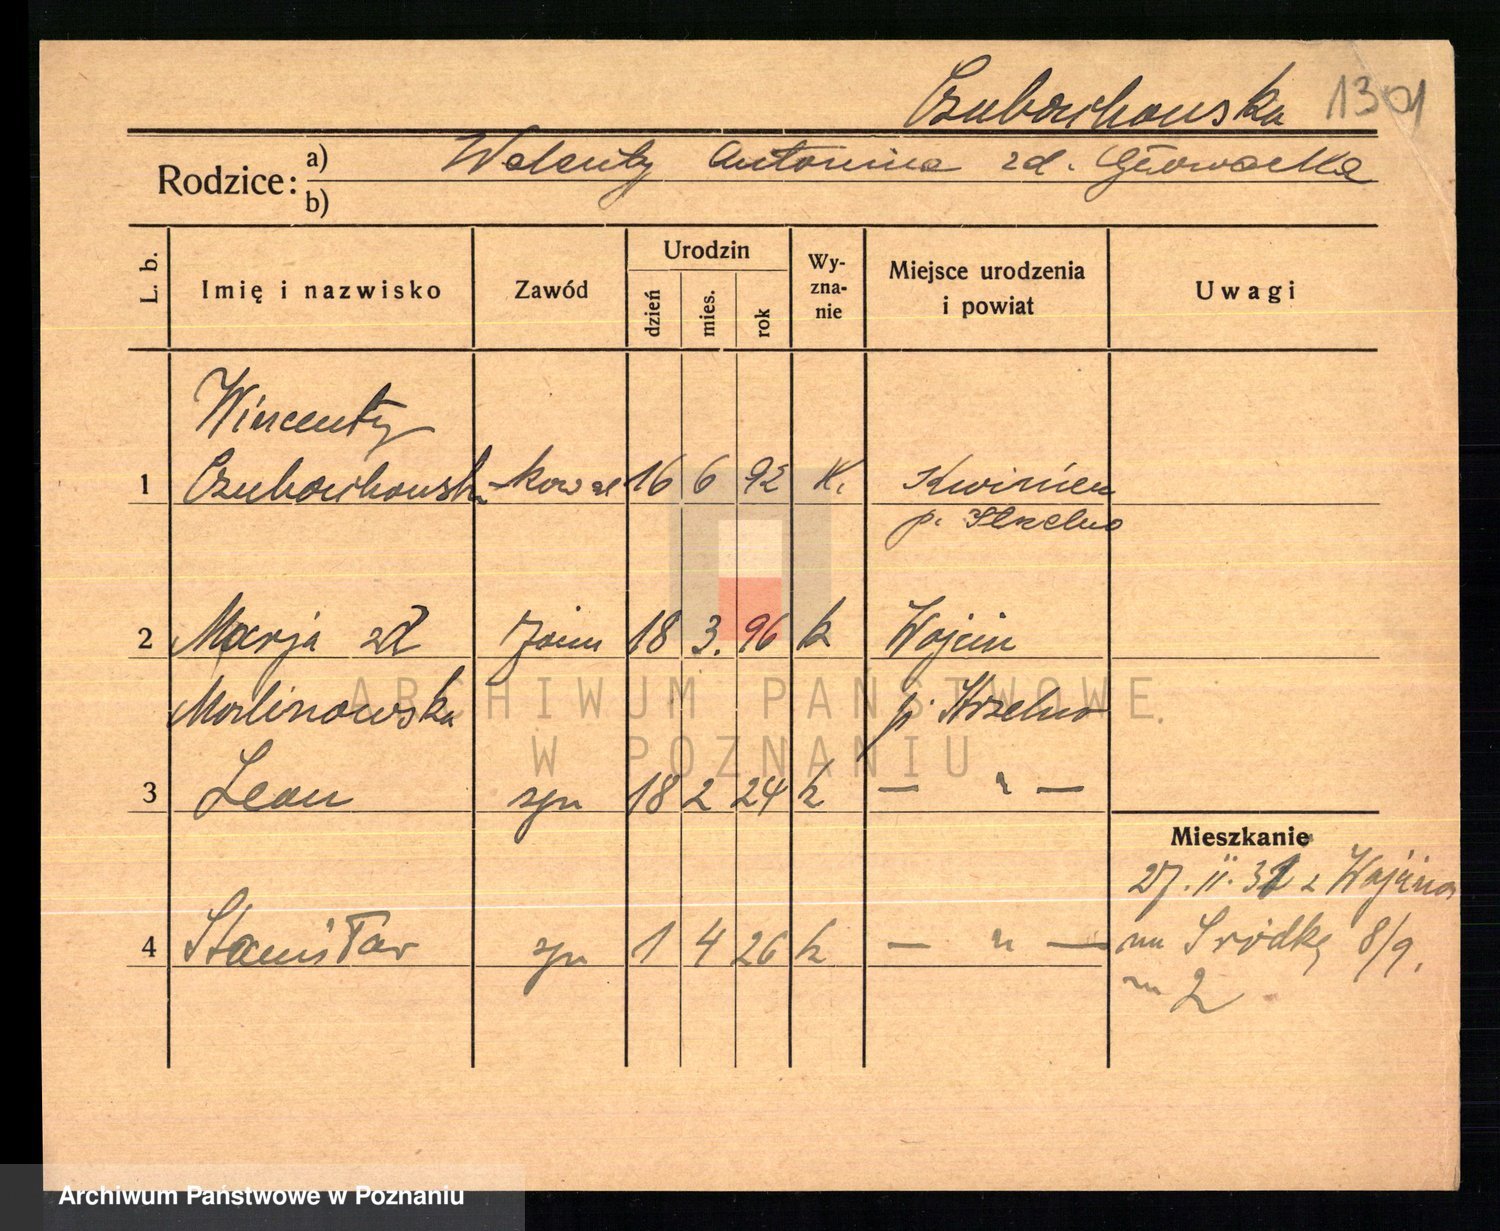 Czubowkowska 1301
Rodzice: a) Walenty Antonina zd. Głowacka
b)
L. b. Imię i nazwisko Zawód Urodzin dzień mies. rok Wyznanie Miejsce urodzenia i powiat Uwagi
Wincenty
1 kowal 16 6 92 K.
p. Strzelno
2 Marja zd żona 18 3. 96 k Wojcin
Malinowska p. Strzelno
3 Leon syn 18 2 24 k — " —
Mieszkanie
27. II. 31 z Wojcina
4 Stanisław syn 1 4 26 k — " — na Sródkę 8/9.
m 2
ARCHIWUM PAŃSTWOWE
W POZNANIU
Archiwum Państwowe w Poznaniu